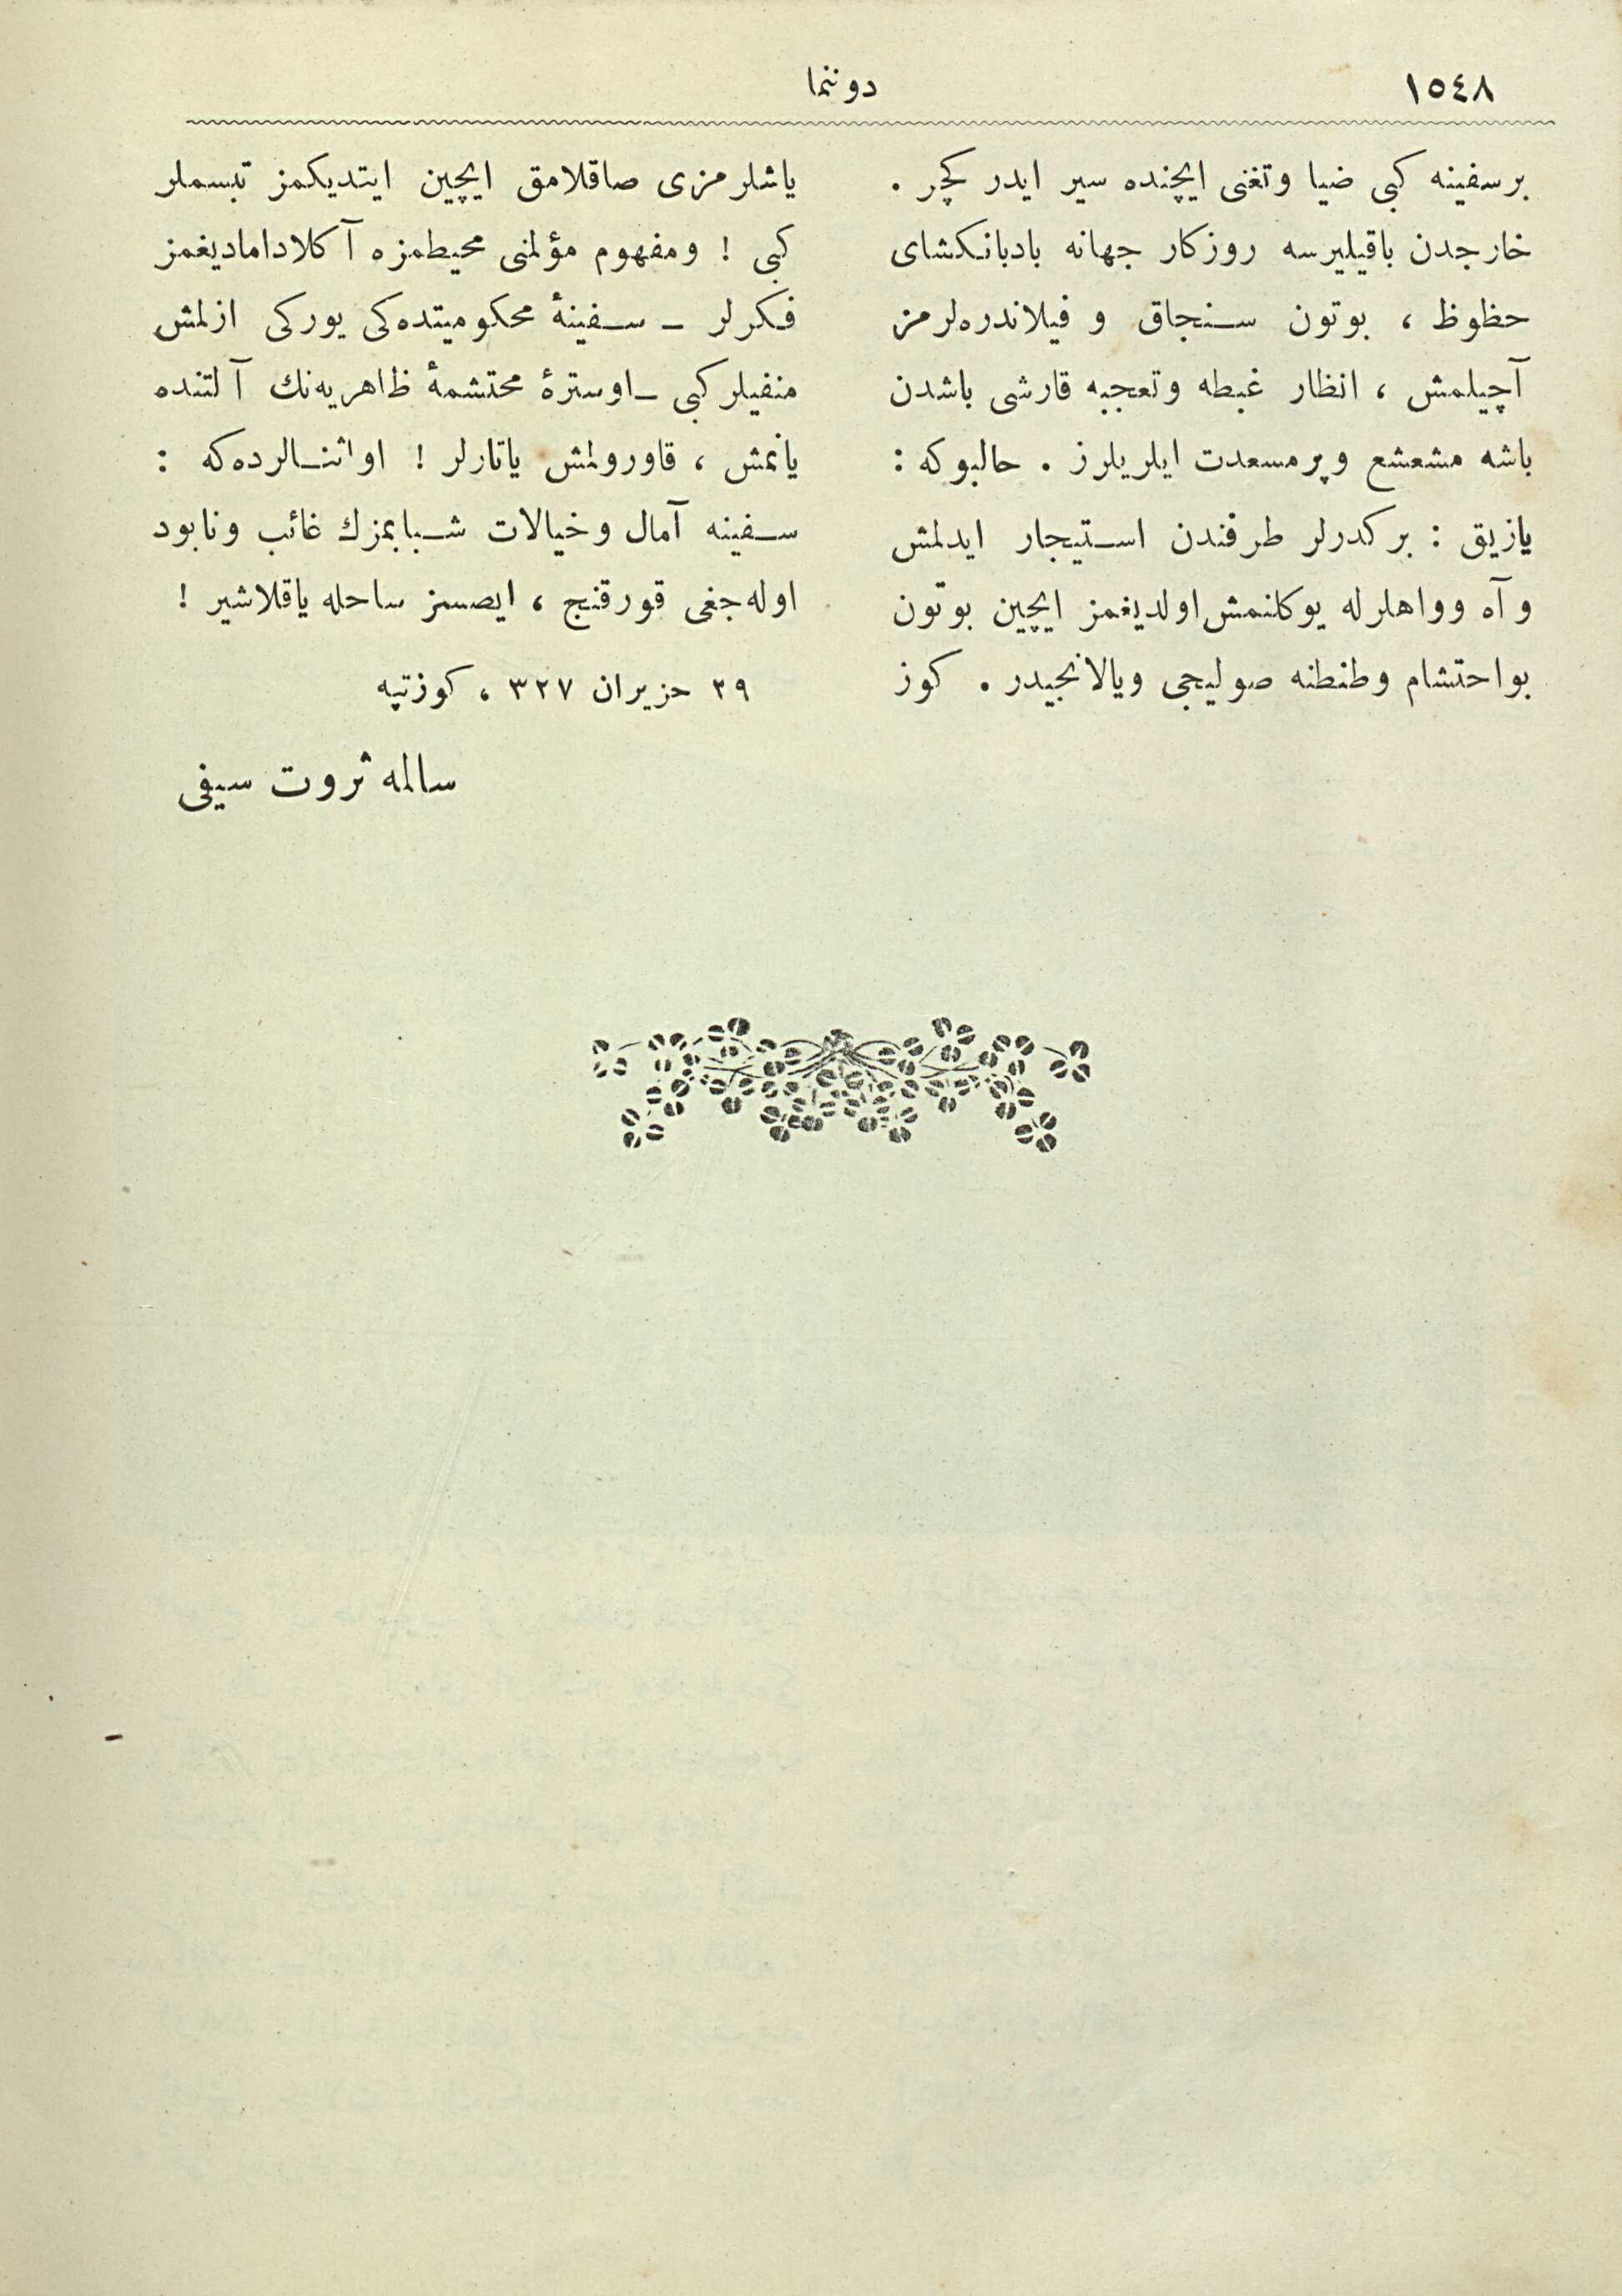 ١٥٤٨
دوننما
بر سفینه کبی ضیا و تغنی ایچنده سیر ایدر کچر .
خارجدن باقیلیرسه روزکار جهانه بادبانکشای
حظوظ ، بوتون سنجاق و فیلاندره‌لرمز
آچیلمش ، انظار غبطه و تعجبه قارشی باشدن
باشه مشعشع و پرمسعدت ایلریلرز . حالبوکه :
یازیق : بر کدرلر طرفندن استیجار ایدلمش
و آه و واهلرله یوکلنمش اولدیغمز ایچین بوتون
بو احتشام و طنطنه صولیجی و یالانجیدر . کوز
یاشلرمزی صاقلامق ایچین ایتدیکمز تبسملر
کبی ! و مفهوم مؤلمنی محیطمزه آکلاداماديغمز
فکرلر ــ سفینهٔ محکومیتده‌کی یورکی ازلمش
منفیلر کبی ــ او سترهٔ محتشمهٔ ظاهریه‌نك آلتنده
یانمش ، قاورولمش یاتارلر ! او اثنالرده‌که :
سفینه آمال و خیالات شبابمزك غائب و نابود
اوله‌جغی قورقنج ، ایصسز ساحله یاقلاشیر !
٢٩ حزیران ٣٢٧ ، کوزتپه
سالمه ثروت سیفی